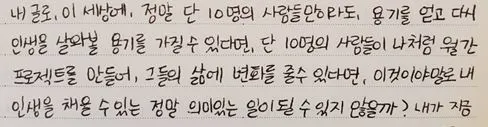 내 글로, 이 세상에, 정말 단 10명의 사람들만이라도, 용기를 얻고 다시
인생을 살아볼 용기를 가질 수 있다면, 단 10명의 사람들이 나처럼 월간
프로젝트를 만들어, 그들의 삶에 변화를 줄 수 있다면, 이것이야말로 내
인생을 채울 수 있는 정말 의미있는 일이 될 수 있지 않을까? 내가 지금